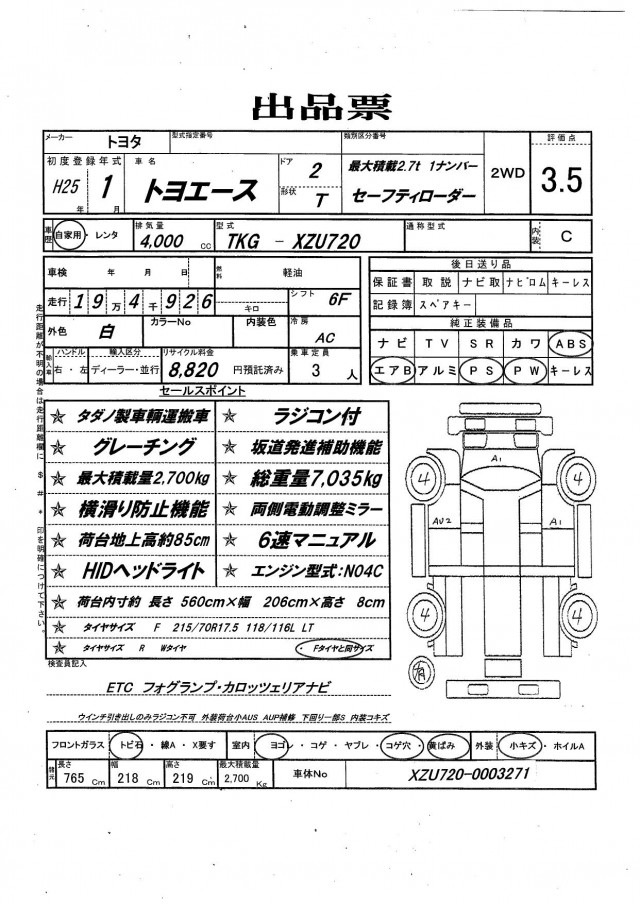 出品票
メーカー トヨタ 型式指定番号 類別区分番号 評価点
初度登録年式 H25年 1月 車名 トヨエース ドア 2 形状 T 最大積載2.7t 1ナンバー セーフティローダー 2WD 3.5
車歴 自家用・レンタ 排気量 4,000 cc 型式 TKG - XZU720 通称型式 内装 C
車検 年 月 日 燃料 軽油 後日送り品
走行 19万4千926 キロ シフト 6F 保証書 取説 ナビ取 ナビロム キーレス
記録簿 スペアキー
外色 白 カラーNo 内装色 冷房 AC 純正装備品
ナビ TV SR カワ ABS
輸入車 ハンドル 右・左 輸入区分 ディーラー・並行 リサイクル料金 8,820 円預託済み 乗車定員 3人 エアB アルミ PS PW キーレス
走行距離が不明の場合は走行距離欄に $ # * 印を明確につけて下さい。
セールスポイント
☆ タダノ製車輌運搬車 ☆ ラジコン付
☆ グレーチング ☆ 坂道発進補助機能
☆ 最大積載量2,700kg ☆ 総重量7,035kg
☆ 横滑り防止機能 ☆ 両側電動調整ミラー
☆ 荷台地上高約85cm ☆ 6速マニュアル
☆ HIDヘッドライト ☆ エンジン型式:N04C
☆ 荷台内寸約 長さ 560cm×幅 206cm×高さ 8cm
☆ タイヤサイズ F 215/70R17.5 118/116L LT
☆ タイヤサイズ R Wタイヤ ・Fタイヤと同サイズ
A1
4 4
AU2 A1
4 4
有
検査員記入
ETC フォグランプ・カロッツェリアナビ
ウインチ引き出しのみラジコン不可 外装荷台小AUS AUP補修 下回り一部S 内装コキズ
フロントガラス トビ石・線A・X要す 室内 ヨゴレ・コゲ・ヤブレ・コゲ穴・黄ばみ 外装 小キズ・ホイルA
諸元 長さ 765 Cm 幅 218 Cm 高さ 219 Cm 最大積載量 2,700 Kg 車体No XZU720-0003271